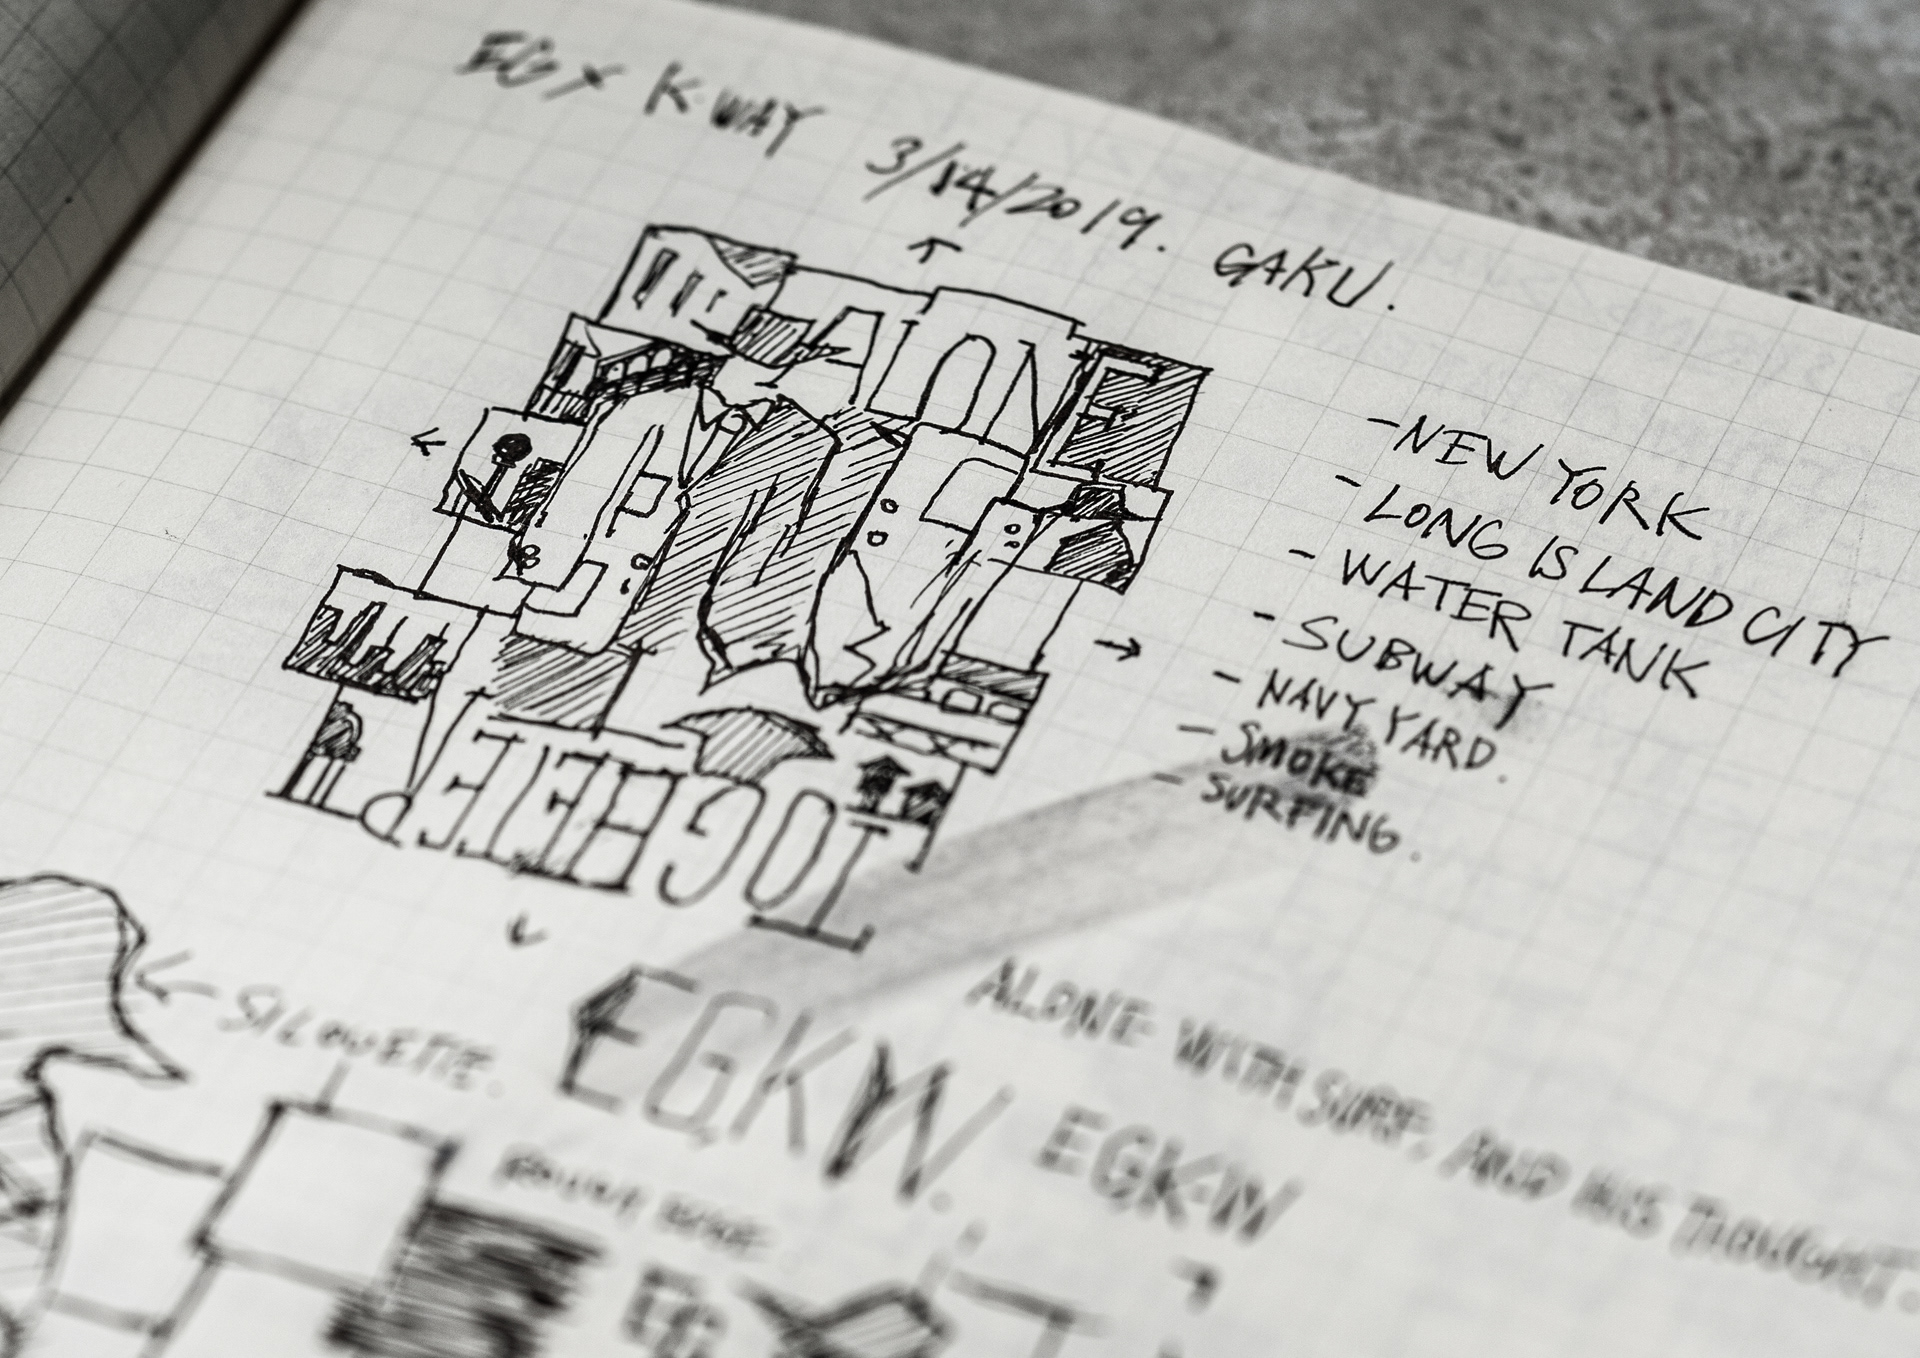 EG X K-WAY 3/14/2019. GAKU.
ALONE
- NEW YORK
- LONG ISLAND CITY
- WATER TANK
- SUBWAY
- NAVY YARD.
- SMOKE
- SURFING.
TOGETHER
← SILOUETTE.
EGKW.
ALONE WITH SURF. AND HIS THOUGHT.
EGK-W